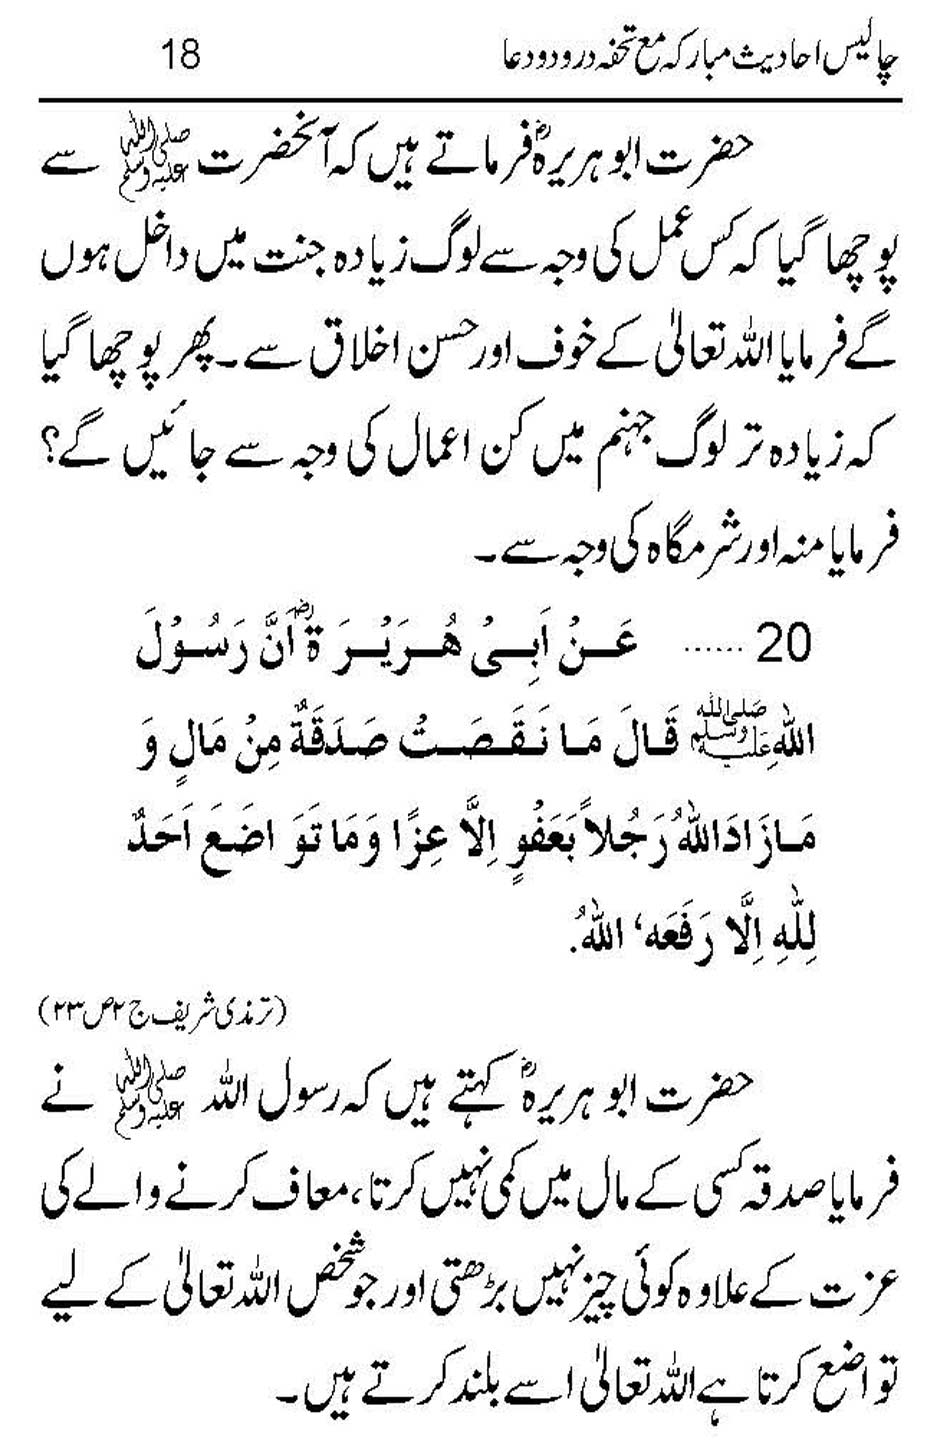 چالیس احادیث مبارکہ مع تحفہ درود و دعا 18
حضرت ابو ہریرہؓ فرماتے ہیں کہ آنحضرت ﷺ سے
پوچھا گیا کہ کس عمل کی وجہ سے لوگ زیادہ جنت میں داخل ہوں
گے فرمایا اللہ تعالیٰ کے خوف اور حسن اخلاق سے۔ پھر پوچھا گیا
کہ زیادہ تر لوگ جہنم میں کن اعمال کی وجہ سے جائیں گے؟
فرمایا منہ اور شرمگاہ کی وجہ سے۔
20 ...... عَنْ اَبِیْ ھُرَیْرَۃؓ اَنَّ رَسُوْلَ
اللّٰہِ ﷺ قَالَ مَا نَقَصَتْ صَدَقَۃٌ مِنْ مَالٍ وَ
مَازَادَاللّٰہُ رَجُلاً بَعَفْوٍ اِلَّا عِزًا وَمَا تَوَاضَعَ اَحَدٌ
لِلّٰہِ اِلَّا رَفَعَہ‘ اللّٰہُ.
(ترمذی شریف ج ۲ ص ۲۳)
حضرت ابو ہریرہؓ کہتے ہیں کہ رسول اللہ ﷺ نے
فرمایا صدقہ کسی کے مال میں کمی نہیں کرتا، معاف کرنے والے کی
عزت کے علاوہ کوئی چیز نہیں بڑھتی اور جو شخص اللہ تعالیٰ کے لیے
تواضع کرتا ہے اللہ تعالیٰ اسے بلند کرتے ہیں۔